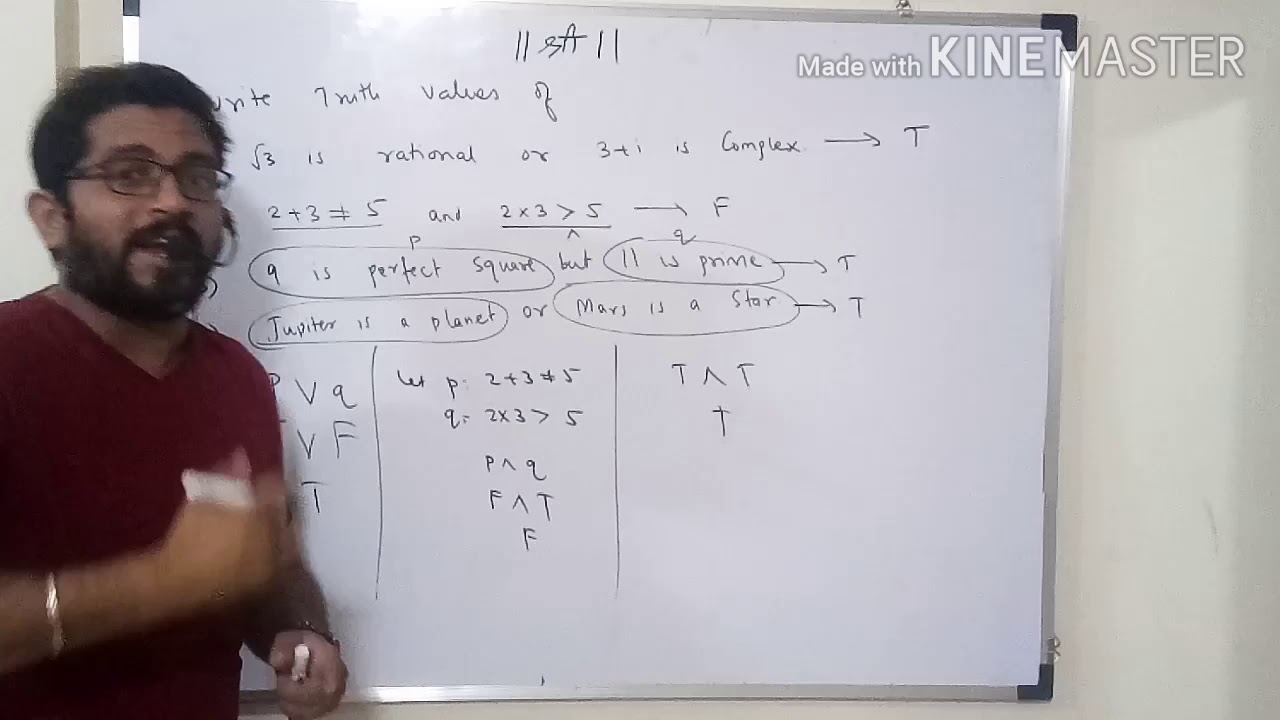 || श्री ||
Made with KINEMASTER
write Truth values of
√3 is rational or 3+i is Complex. → T
2+3 ≠ 5 and 2×3 > 5 → F
p ∧ q
9 is perfect square but 11 is prime → T
Jupiter is a planet or Mars is a Star → T
p ∨ q
∨ F
T
let p: 2+3≠5
q: 2×3 > 5
p ∧ q
F ∧ T
F
T ∧ T
T